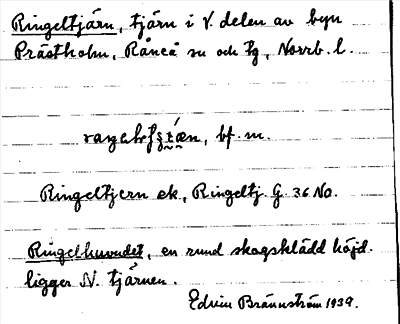 Ringeltjärn, tjärn i V. delen av byn
Prästholm, Råneå sn och tg, Norrb. l.
bf. m.
Ringeltjern ek., Ringeltj. G. 36 No.
Ringelhuvudet, en rund skogsklädd höjd.
ligger N. tjärnen.
Edvin Brännström 1939.